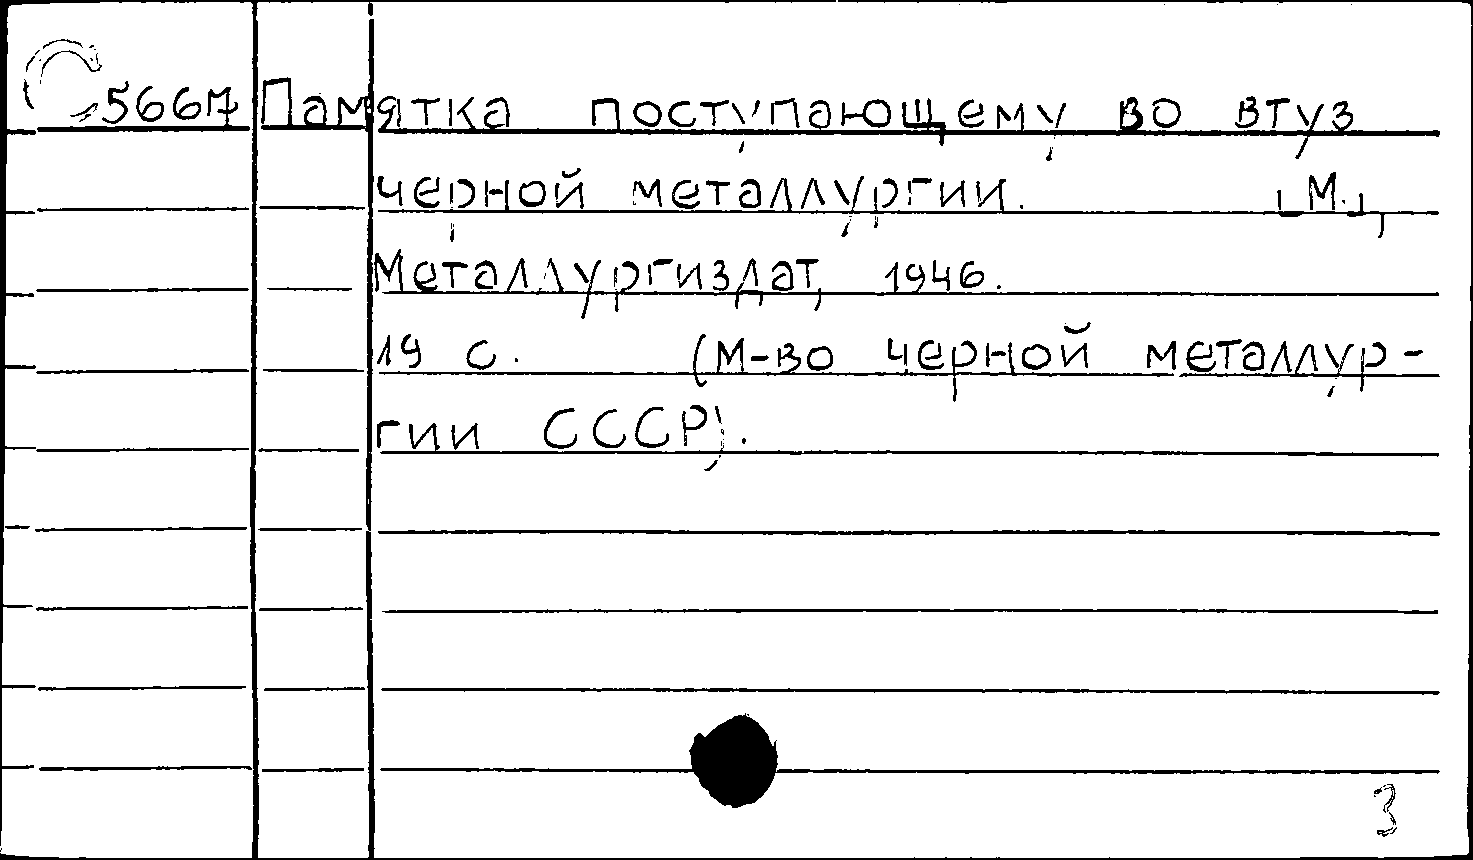 С5667 Памятка поступающему во втуз
черной металлургии. [М.],
Металлургиздат, 1946.
19 с. (М-во черной металлур-
гии СССР).
3